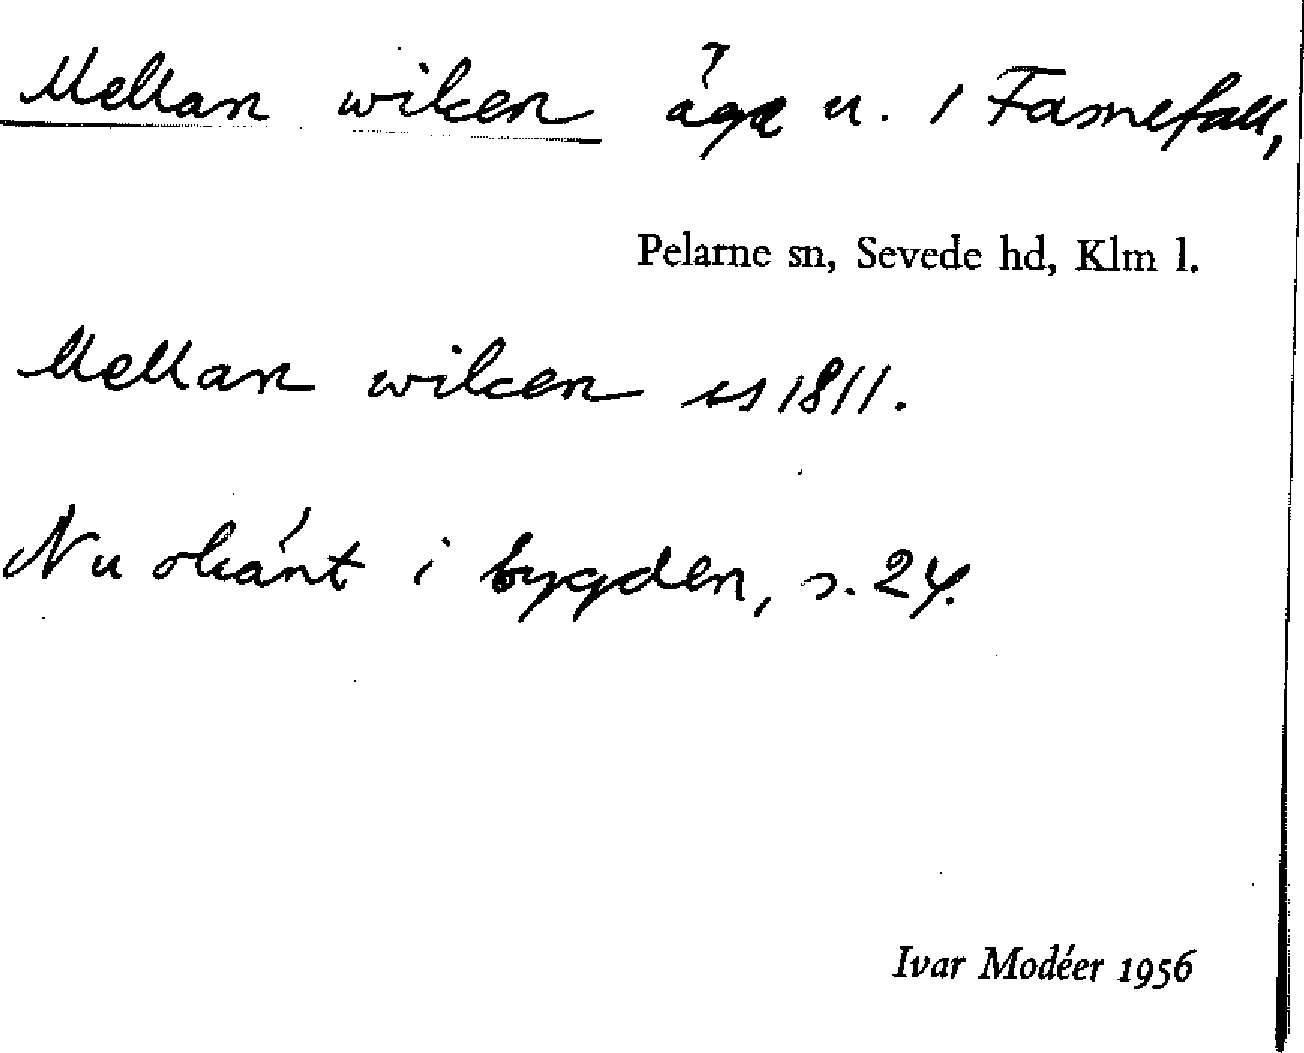 Mellan wiken äga u. / Famefall,
Pelarne sn, Sevede hd, Klm l.
Mellan wiken ss 1811.
Nu okánt i bygden, s. 24.
Ivar Modéer 1956